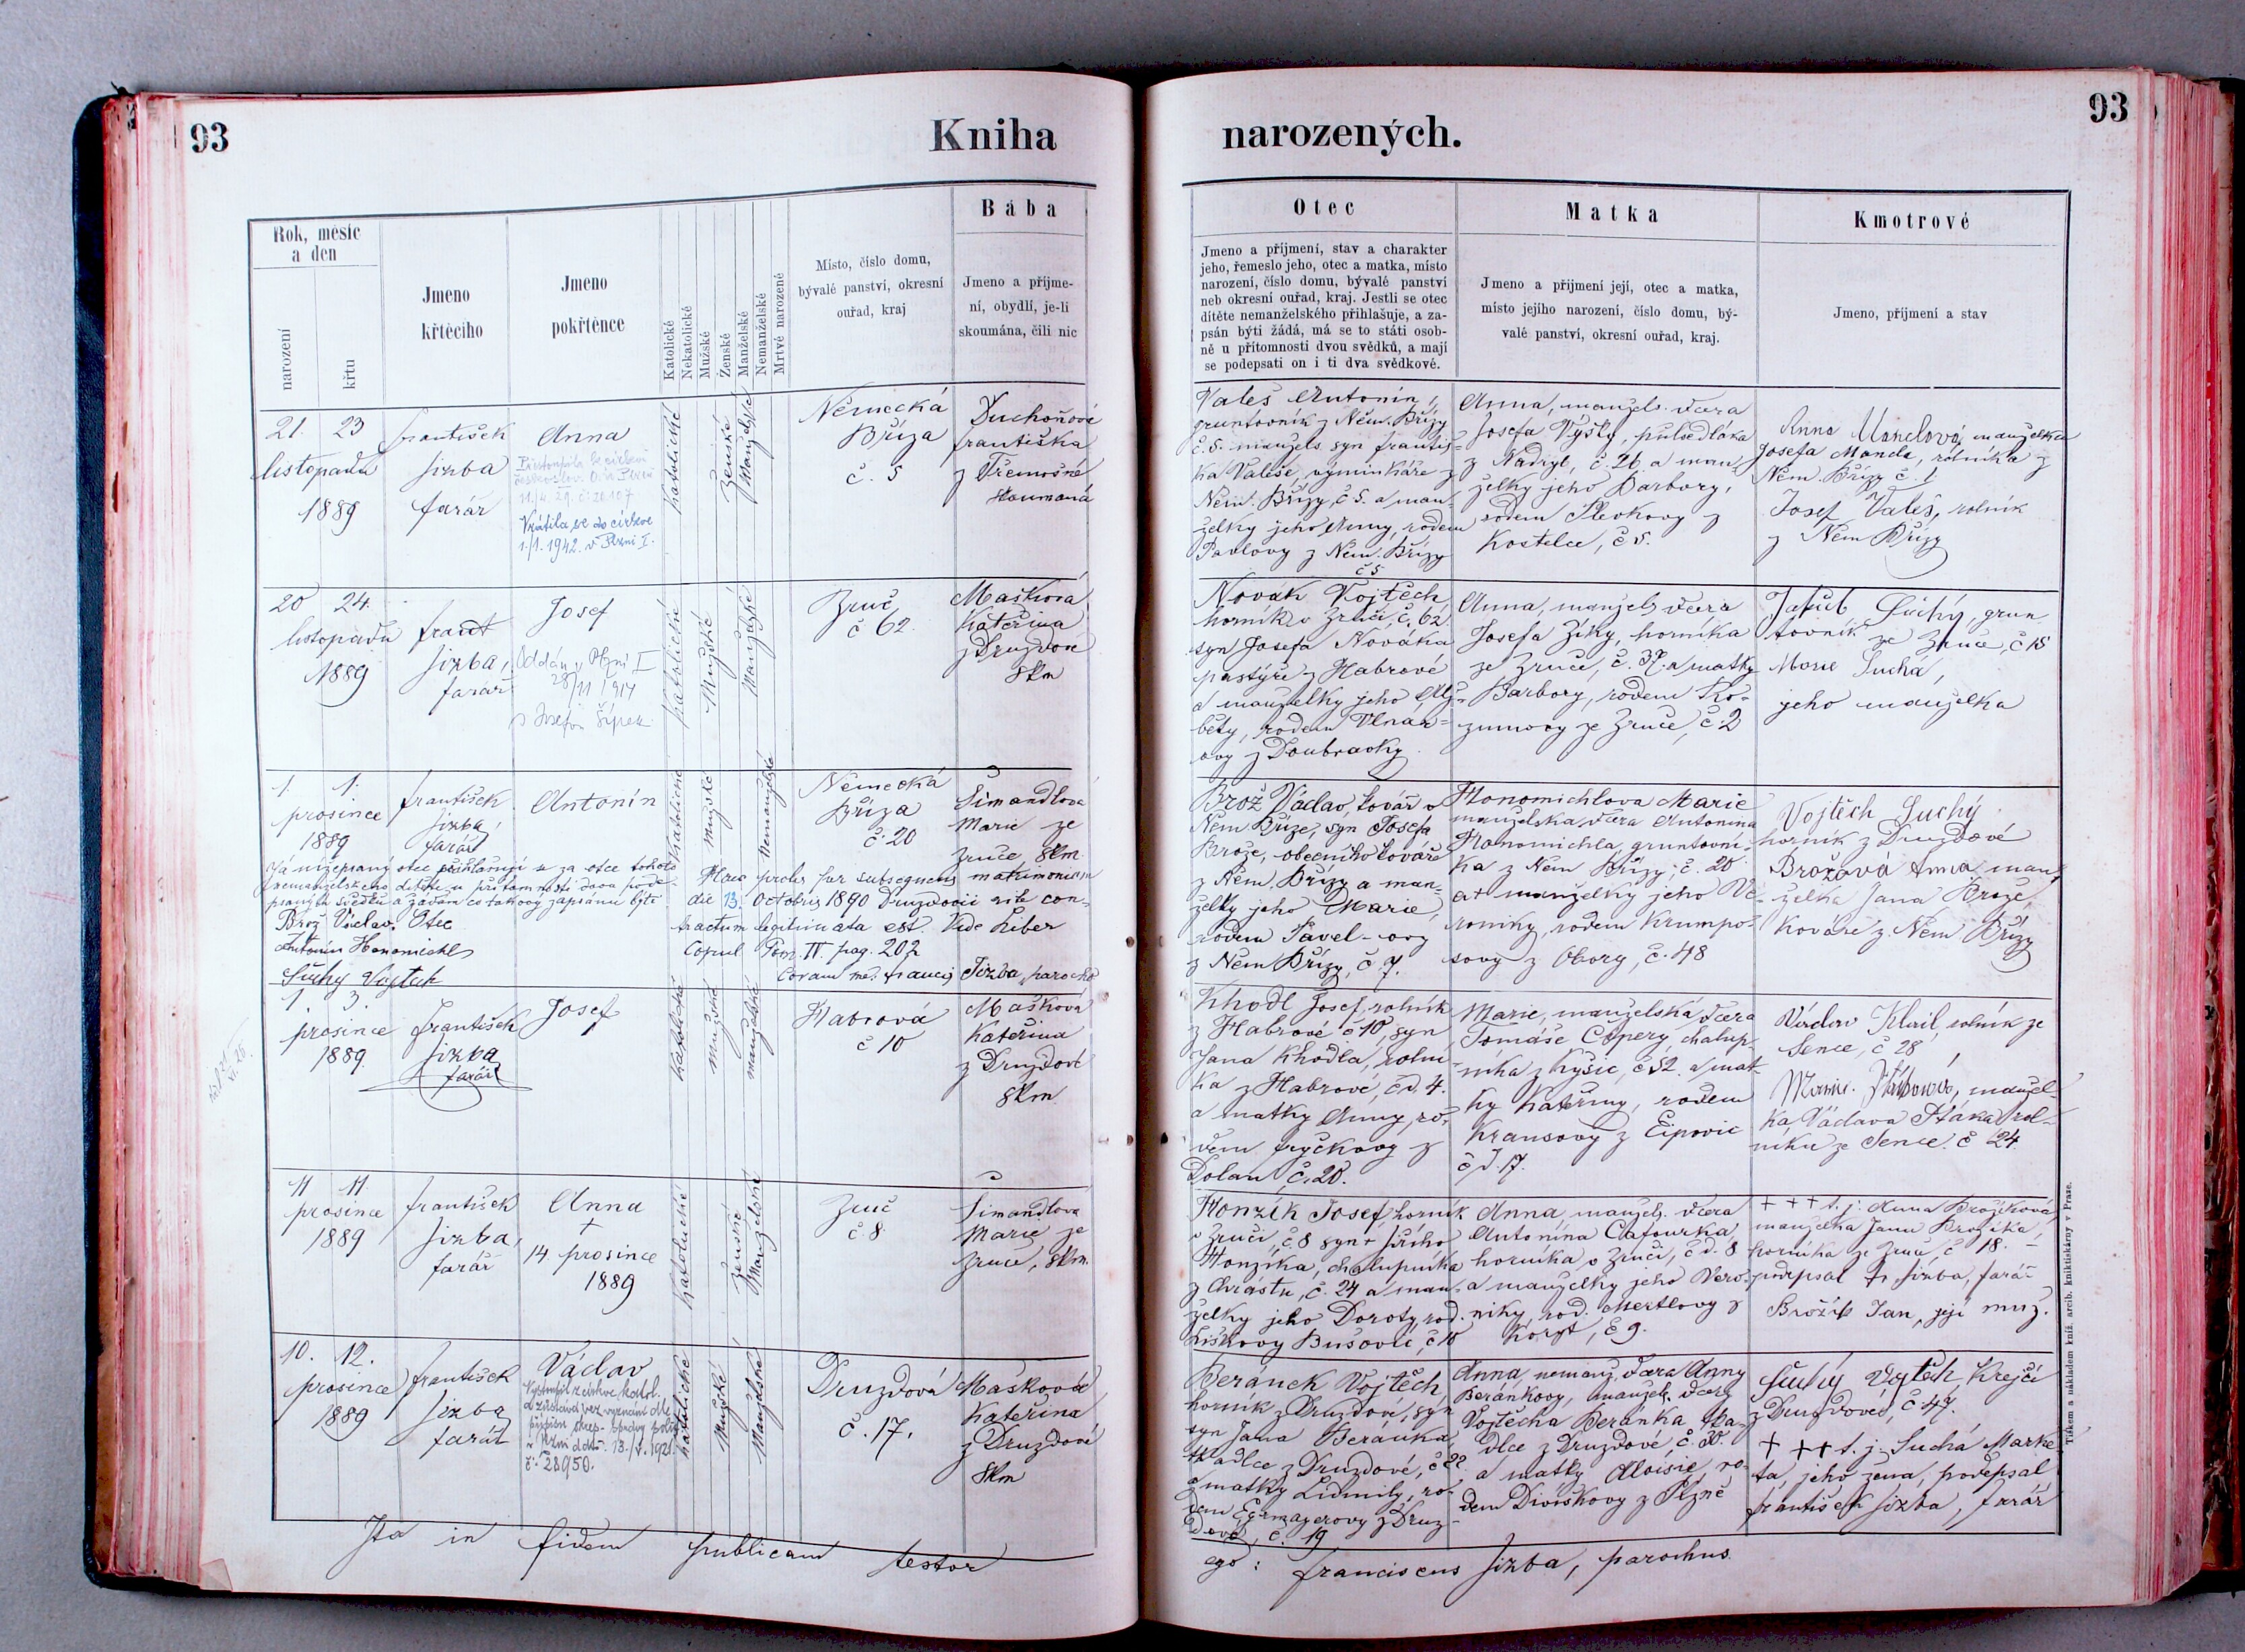 93
Kniha
narozených.
93
Rok, měsíc
a den
narození
křtu
Jmeno
křtěcího
Jmeno
pokřtěnce
Katolické
Nekatolické
Mužské
Ženské
Manželské
Nemanželské
Mrtvě narozené
Místo, číslo domu,
bývalé panství, okresní
ouřad, kraj
Bába
Jmeno a příjme-
ní, obydlí, je-li
skoumána, čili nic
Otec
Jmeno a příjmení, stav a charakter
jeho, řemeslo jeho, otec a matka, místo
narození, číslo domu, bývalé panství
neb okresní ouřad, kraj. Jestli se otec
dítěte nemanželského přihlašuje, a za-
psán býti žádá, má se to státi osob-
ně u přítomnosti dvou svědků, a mají
se podepsati on i ti dva svědkové.
Matka
Jmeno a příjmení její, otec a matka,
místo jejího narození, číslo domu, bý-
valé panství, okresní ouřad, kraj.
Kmotrové
Jmeno, příjmení a stav
21. 23
listopadu
1889
František
Sixba
farář
Anna
11./4. 29. č. 28107
Vrátila se do církve
1./1. 1942. v Plzni I.
Katolické
Ženské
Manželské
Německá
Bříza
č. 5
Duchoňová
Františka
z Třemošné
skoumaná
Valeš Antonín,
gruntovník z Něm. Břízy
č. 5. manžels. syn Františ-
ka Valeše, výminkáře z
Něm. Břízy, č. 5. a man-
želky jeho Anny, rodem
Pavlovy z Něm. Břízy
č 5
Anna, manžels. dcera
Josefa Vyšty, půlsedláka
z Nadryb, č. 26. a man-
želky jeho Barbory,
rodem
Kostelce, č 5.
Anna Mandlová, manželka
Josefa Mandla, rolníka z
Něm. Břízy č. 1.
Josef Valeš, rolník
z Něm Břízy
20 24.
listopadu
1889
Frant
Sixba,
farář
Josef
Oddán v Plzni I
28/11 1914
s Josefou Šípek
Katolické
Mužské
Manželské
Zruč
č 62.
Mašková
Kateřina
z Druzdové
skm
Novák Vojtěch
horník v Zruči, č. 62.
syn Josefa Nováka
pastýře z Habrové
a manželky jeho Alž-
běty, rodem Vlnař-
ovy z Doubravky.
Anna, manžels dcera
Josefa Ziky, horníka
ze Zruče, č. 37. a matky
Barbory, rodem Ro-
zumovy ze Zruče, č. 2
Jakub Suchý, grun
tovník ze Zruče, č 15
Marie Suchá,
jeho manželka
1. 1.
prosince
1889
František
Sixba,
farář
Antonín
Katolické
Mužské
Nemanželské
Německá
Bříza
č. 20
Šimandlová
Marie ze
Zruče, skm.
Já nížepsaný otec přihlašuji se za otce tohoto
nemanželského dítěte u přítomnosti dvou pode-
psaných svědků a žádám co takový zapsánu býti
Brož Václav. Otec
Antonín Honomichl
Suchý Vojtěch
Haec proles per subsequens matrimonium
die 13. Octobris 1890 Druzdovii rite con-
tractum legitimata est. Vide Liber
Copul Tom. III pag. 202
Coram me: Francis Sixba, parochus
Brož Václav, kovář v
Něm Bříze, syn Josefa
Brože, obecního kováře
z Něm. Břízy a man-
želky jeho Marie,
rodem Pavel-ovy
z Něm Břízy, č 7.
Honomichlova Marie
manželská dcera Antonína
Honomichla, gruntovní-
ka z Něm Břízy, č. 20
a manželky jeho Ve-
roniky, rodem Krumpo-
sovy z Obory, č. 48
Vojtěch Suchý
horník z Druzdové
Brožová Anna man-
želka Jana Brože,
Kováře z Něm Břízy
1. 3.
prosince
1889.
František
Sixba
farář
Josef
Katolické
Mužské
manželské
Habrová
č 10
Mašková
Kateřina
z Druzdové
skm
Khodl Josef, rolník
z Habrové č 10, syn
Jana Khodla, rolní-
ka z Habrové, čd. 4.
a matky Anny, ro-
dem Fryčkovy z
Dolan, č. 20.
Marie, manželská dcera
Tomáše Copery, chalup-
níka z Kyšic, č 52. a mat-
ky Kateřiny, rodem
Krausovy z Ejpovic
čd. 17.
Václav Klail, rolník ze
Sence, č 28
Marie, manžel-
ka Václava Ptáka rol-
níka ze Sence. č 24.
11 11.
prosince
1889
František
Sixba,
farář
Anna
†
14. prosince
1889
Katolické
Ženské
Manželské
Zruč
č. 8.
Šimandlova
Marie ze
Zruče, skm.
Honzík Josef horník
v Zruči, č. 8 syn † Jiřího
Honzíka, chalupníka
z Chrástu, č. 24 a man-
želky jeho Doroty, rod.
Liškovy Bušovic, č 10
Anna, manžels. dcera
Antonína Cafourka,
horníka v Zruči, čd. 8
a manželky jeho Vero-
niky, rod. Mertlovy z
č 9.
+ + + t. j. Anna Brožíková
manželka Jana Brožíka,
horníka ze Zruče, č 18. –
podepsal Fr. Sixba, farář
Brožík Jan, její muž.
10. 12.
prosince
1889
František
Sixba
farář
Václav
Vystoupil z církve katol.
a zůstává bez vyznání dle
v Plzni ddto. 13./1. 1921.
č. 28950.
Katolické
Mužské
Manželské
Druzdová
č. 17.
Mašková
Kateřina
z Druzdové
skm
Beránek Vojtěch,
horník z Druzdové, syn
syn Jana Beránka
tkadlce z Druzdové, č 22
a matky Lidmily, ro-
dem Egrmayerovy z Druz-
dové, č. 19
Anna, nemanž. dcera Anny
Beránkovy, manžels. dcery
Vojtěcha Beránka, tka-
dlce z Druzdové, č. 30.
a matky Aloisie, ro-
dem Divíškovy z Plzně
Suchý Vojtěch Krejčí
z Druzdové, č 47.
+ ++ t. j. Suchá Marke
ta, jeho žena, podepsal
František Sixba, farář
Ita in fidem publicam testor
ego: Franciscus Sixba, parochus
Tiskem a nákladem kníž. arcib. knihtiskárny v Praze.